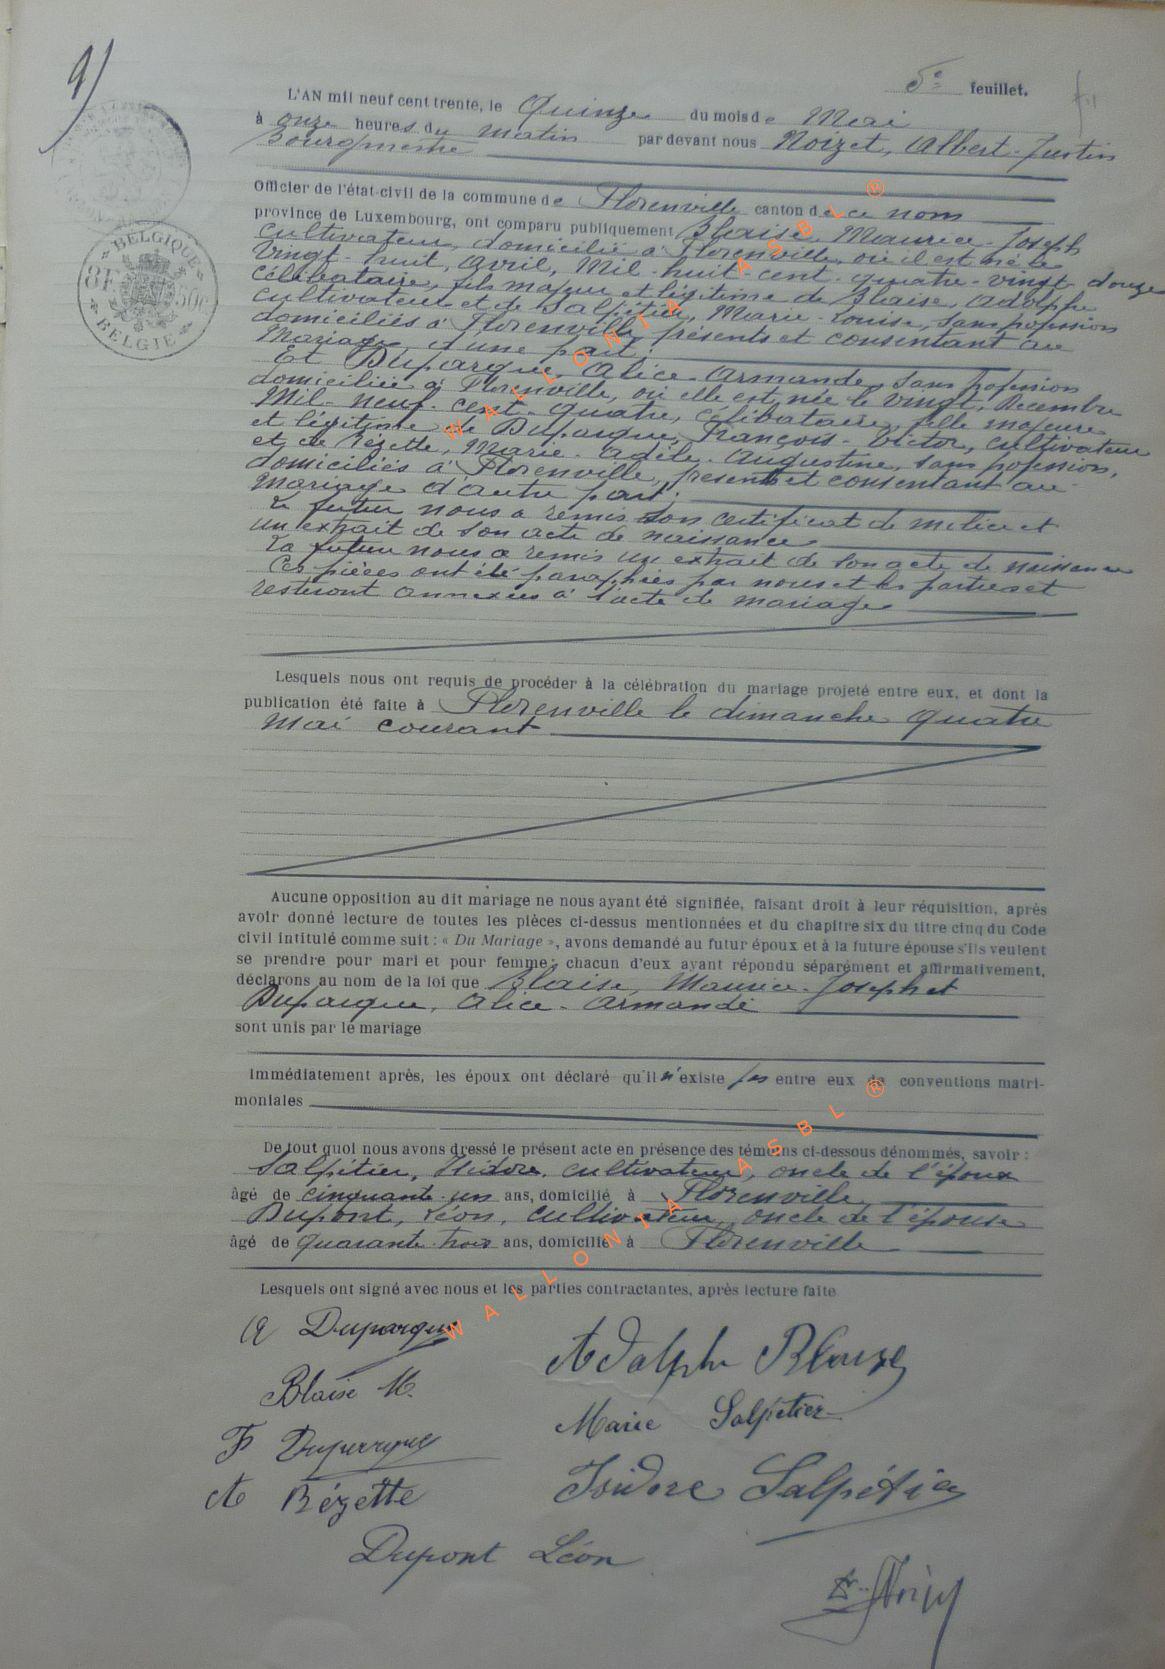 9)
5e feuillet.
L'AN mil neuf cent trente, le Quinze du mois de Mai
à onze heures du matin par devant nous Noizet, Albert-Justin
Bourgmestre
Officier de l'état-civil de la commune de Florenville canton de ce nom
province de Luxembourg, ont comparu publiquement Blaise, Maurice-Joseph
cultivateur, domicilié à Florenville, où il est né le
vingt-huit, avril, mil-huit-cent-quatre-vingt-douze
célibataire, fils majeur et légitime de Blaise, Adolphe
cultivateur et de Salpétier, Marie-Louise, sans profession
domiciliés à Florenville, présents et consentant au
mariage, d'une part;
Et Duparque, Alice-Armande, sans profession
domiciliée à Florenville, où elle est née le vingt, Décembre
Mil-neuf-cent-quatre, célibataire, fille majeure
et légitime de Duparque, François-Victor, cultivateur
et de Bézette, Marie-Adèle-Augustine, sans profession,
domiciliés à Florenville, présents et consentant au
mariage d'autre part;
Le futur nous a remis son certificat de milice et
un extrait de son acte de naissance
La future nous a remis un extrait de son acte de naissance
Ces pièces ont été paraphées par nous et les parties et
resteront annexées à l'acte de mariage
Lesquels nous ont requis de procéder à la célébration du mariage projeté entre eux, et dont la
publication été faite à Florenville le dimanche quatre
mai courant
Aucune opposition au dit mariage ne nous ayant été signifiée, faisant droit à leur réquisition, après
avoir donné lecture de toutes les pièces ci-dessus mentionnées et du chapitre six du titre cinq du Code
civil intitulé comme suit : « Du Mariage », avons demandé au futur époux et à la future épouse s'ils veulent
se prendre pour mari et pour femme; chacun d'eux ayant répondu séparément et affirmativement,
déclarons au nom de la loi que Blaise, Maurice-Joseph et
Duparque, Alice-Armande
sont unis par le mariage
Immédiatement après, les époux ont déclaré qu'il n'existe pas entre eux de conventions matri-
moniales
De tout quoi nous avons dressé le présent acte en présence des témoins ci-dessous dénommés, savoir :
Salpétier, Isidore, cultivateur, oncle de l'époux
âgé de cinquante-un ans, domicilié à Florenville
Dupont, Léon, cultivateur, oncle de l'épouse
âgé de quarante trois ans, domicilié à Florenville
Lesquels ont signé avec nous et les parties contractantes, après lecture faite
A Duparque
Adolphe Blaise
Blaise M.
Marie Salpétier
F Duparque
Isidore Salpétier
A Bézette
Dupont Léon
BELGIQUE
3F 50c
BELGIË
WALLONIA ASBL ®
WALLONIA ASBL ®